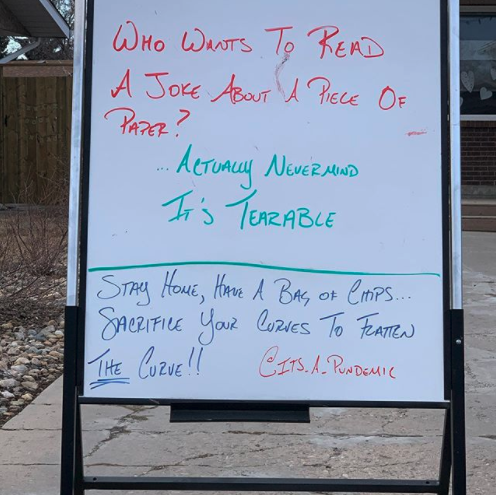 Who Wants To Read
A Joke About A Piece Of
Paper?
...Actually Nevermind
It's Tearable
Stay Home, Have A Bag of Chips...
Sacrifice Your Curves To Flatten
The Curve!!
@its.a.pundemic